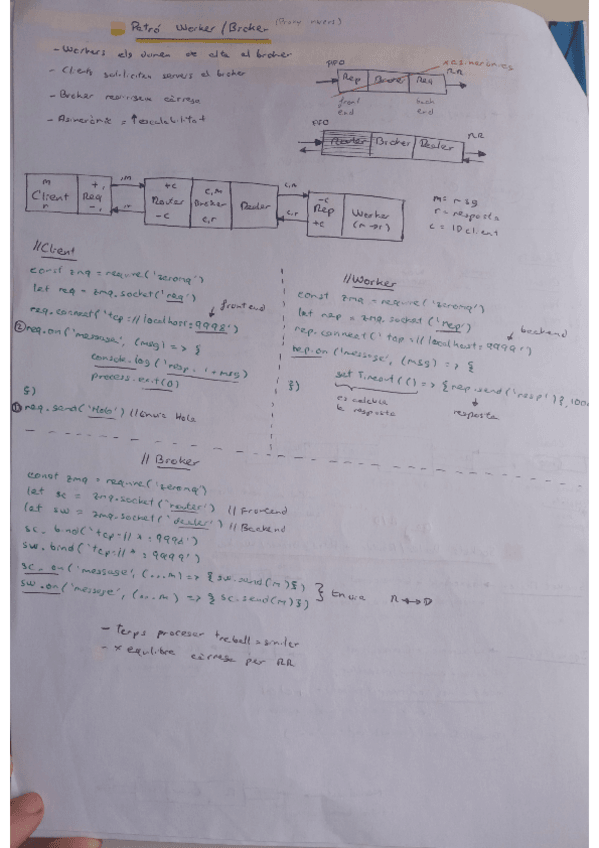 Patró Worker/Broker (Proxy invers)
- Workers els donen de alta al broker
- Clients soliliciten serveis al broker
- Broker reparteix càrrega
- Asíncrònic = ↑ escalabilitat
Rep Broker Req
RR
front end
back end
Router Broker Dealer
RR
m Client r
+, Req -,
,m
,r
+c Router -c
c,m Broker c,r
c,m
c,r
-c Rep +c
Worker (m→r)
m = msg
r = resposta
c = ID client
//Client
const zmq = require('zeromq')
let req = zmq.socket('req')
req.connect('tcp://localhost:9998') frontend
② req.on('message', (msg) => {
console.log('resp. '+msg)
process.exit(0)
})
① req.send('Hola') //Envia Hola
//Worker
const zmq = require('zeromq')
let rep = zmq.socket('rep')
rep.connect('tcp://localhost:9999') backend
rep.on('message', (msg) => {
setTimeout(() => {rep.send('resp')},100
})
es calcula la resposta
resposta
// Broker
const zmq = require('zeromq')
let sc = zmq.socket('router') // Frontend
let sw = zmq.socket('dealer') // Backend
sc.bind('tcp://*:9998')
sw.bind('tcp://*:9999')
sc.on('message', (...m) => {sw.send(m)})
sw.on('message', (...m) => {sc.send(m)})
R ↔ D
- Temps processar treball similar
- × equilibre càrrega per RR